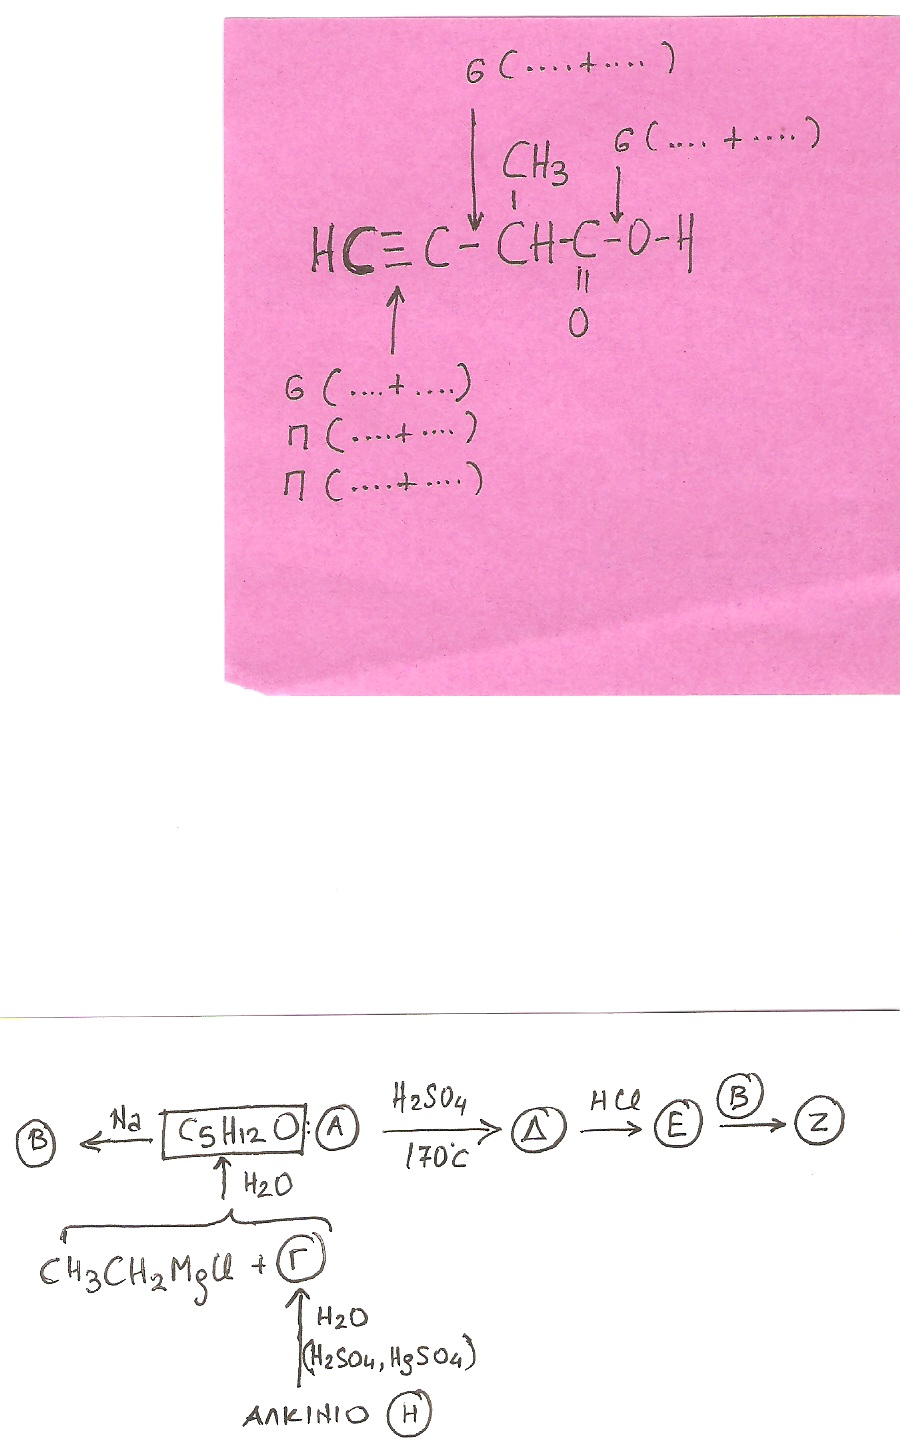 σ (....+....)
CH3 σ (.... + ....)
HC≡C-CH-C-O-H
O
σ (....+....)
π (....+....)
π (....+....)
B Na C5H12O: A H2SO4 170°C Δ HCl E B Z
H2O
CH3CH2MgCl + Γ
H2O
(H2SO4, HgSO4)
ΑΛΚΙΝΙΟ H